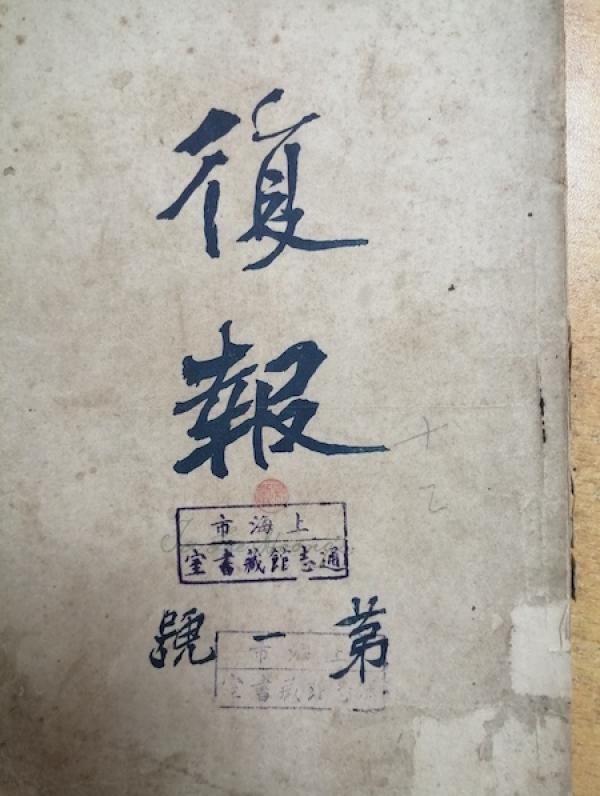 復
報
上海市
通志館藏書室
第一號
上海市